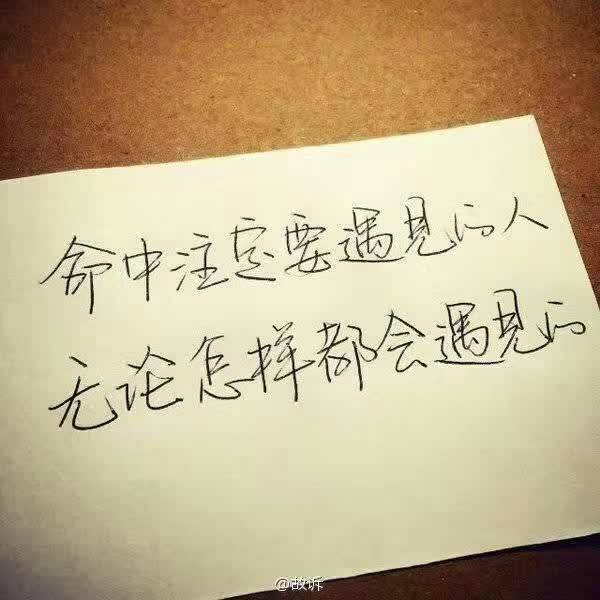 命中注定要遇见的人
无论怎样都会遇见的
@故诉